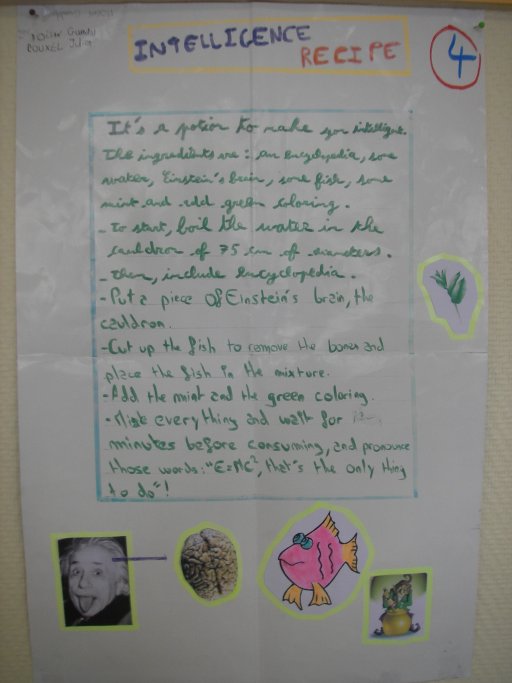 INTELLIGENCE
RECIPE
4
BOUXEL Julia
It's a potion to make you intelligent.
The ingredients are : an encyclopedia, some
water, Einstein's brain, some fish, some
mint and add green coloring.
- To start, boil the water in the
cauldron of 75 cm of diameters.
- Then, include encyclopedia.
- Put a piece of Einstein's brain, the
cauldron.
- Cut up the fish to remove the bones and
place the fish in the mixture.
- Add the mint and the green coloring.
- Mix everything and wait for
minutes before consumming, and pronounce
those words: "E=MC², that's the only thing
to do"!